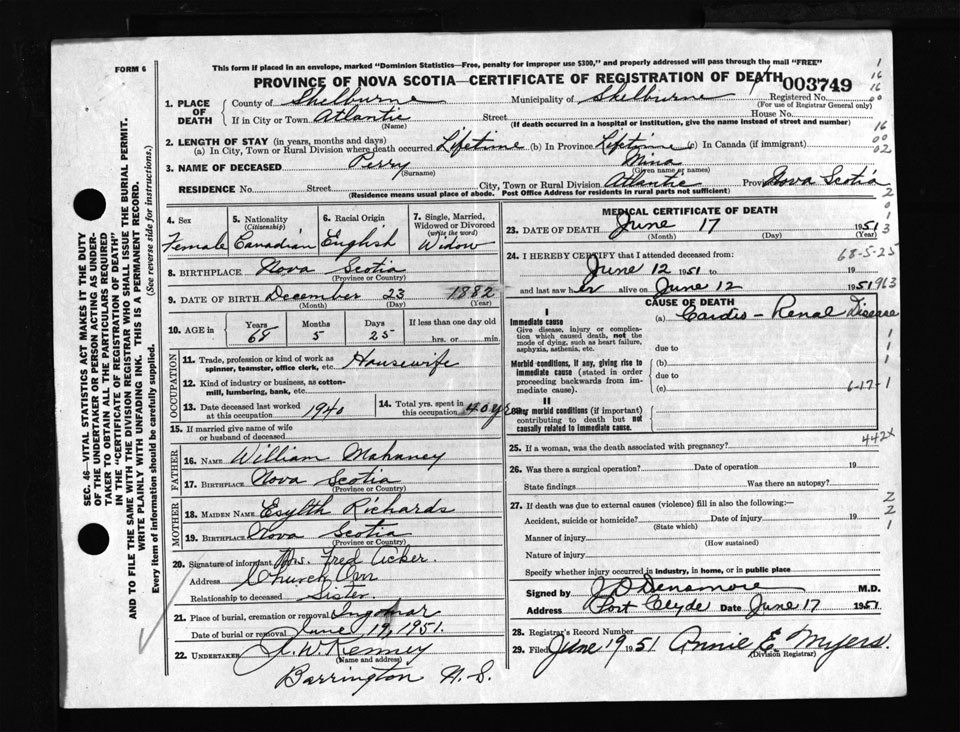 FORM 6
This form if placed in an envelope, marked "Dominion Statistics—Free, penalty for improper use $300," and properly addressed will pass through the mail "FREE"
PROVINCE OF NOVA SCOTIA—CERTIFICATE OF REGISTRATION OF DEATH 003749
1. PLACE OF DEATH
County of Shelburne Municipality of Shelburne Registered No.
(For use of Registrar General only)
If in City or Town Atlantic Street House No.
(Name) (If death occurred in a hospital or institution, give the name instead of street and number)
2. LENGTH OF STAY (in years, months and days)
(a) In City, Town or Rural Division where death occurred Lifetime (b) In Province Lifetime (c) In Canada (if immigrant)
3. NAME OF DECEASED Perry Nina
(Surname) (Given name or names)
RESIDENCE No. Street City, Town or Rural Division Atlantic Province Nova Scotia
(Residence means usual place of abode. Post Office Address for residents in rural parts not sufficient)
4. Sex
Female
5. Nationality
(Citizenship)
Canadian
6. Racial Origin
English
7. Single, Married, Widowed or Divorced
(write the word)
Widow
8. BIRTHPLACE Nova Scotia
(Province or Country)
9. DATE OF BIRTH December 23 1882
(Month) (Day) (Year)
10. AGE in Years Months Days If less than one day old
68 5 25 hrs. or min.
OCCUPATION
11. Trade, profession or kind of work as spinner, teamster, office clerk, etc. Housewife
12. Kind of industry or business, as cotton-mill, lumbering, bank, etc.
13. Date deceased last worked at this occupation 1940
14. Total yrs. spent in this occupation 40 yrs
15. If married give name of wife or husband of deceased
FATHER
16. NAME William Mahaney
17. BIRTHPLACE Nova Scotia
(Province or Country)
MOTHER
18. MAIDEN NAME Esylth Richards
19. BIRTHPLACE Nova Scotia
(Province or Country)
20. Signature of informant Mrs. Fred Acker.
Address Church Over
Relationship to deceased Sister.
21. Place of burial, cremation or removal Ingomar
Date of burial or removal June 19, 1951.
22. UNDERTAKER A. W. Kenney
(Name and address)
Barrington N. S.
MEDICAL CERTIFICATE OF DEATH
23. DATE OF DEATH June 17 1951
(Month) (Day) (Year)
24. I HEREBY CERTIFY that I attended deceased from:
68-5-25
June 12 1951 to 19
and last saw her alive on June 12 1951
963
CAUSE OF DEATH
I
Immediate cause
Give disease, injury or complication which caused death, not the mode of dying, such as heart failure, asphyxia, asthenia, etc.
(a) Cardio-Renal Disease
due to
Morbid conditions, if any, giving rise to immediate cause (stated in order proceeding backwards from immediate cause).
(b)
due to
(c)
6-17-1
II
Other morbid conditions (if important) contributing to death but not causally related to immediate cause.
442x
25. If a woman, was the death associated with pregnancy?
26. Was there a surgical operation? Date of operation 19
State findings Was there an autopsy?
27. If death was due to external causes (violence) fill in also the following:—
Accident, suicide or homicide? Date of injury 19
(State which)
Manner of injury
(How sustained)
Nature of injury
Specify whether injury occurred in industry, in home, or in public place
Signed by J D Densmore M.D.
Address Port Clyde Date June 17 1951
28. Registrar's Record Number
29. Filed June 19 1951 Annie E. Myers.
(Division Registrar)
SEC. 46—VITAL STATISTICS ACT MAKES IT THE DUTY
OF THE UNDERTAKER OR PERSON ACTING AS UNDER-
TAKER TO OBTAIN ALL THE PARTICULARS REQUIRED
IN THE "CERTIFICATE OF REGISTRATION OF DEATH"
AND TO FILE THE SAME WITH THE DIVISION REGISTRAR WHO SHALL ISSUE THE BURIAL PERMIT.
WRITE PLAINLY WITH UNFADING INK. THIS IS A PERMANENT RECORD.
Every item of information should be carefully supplied. (See reverse side for instructions.)